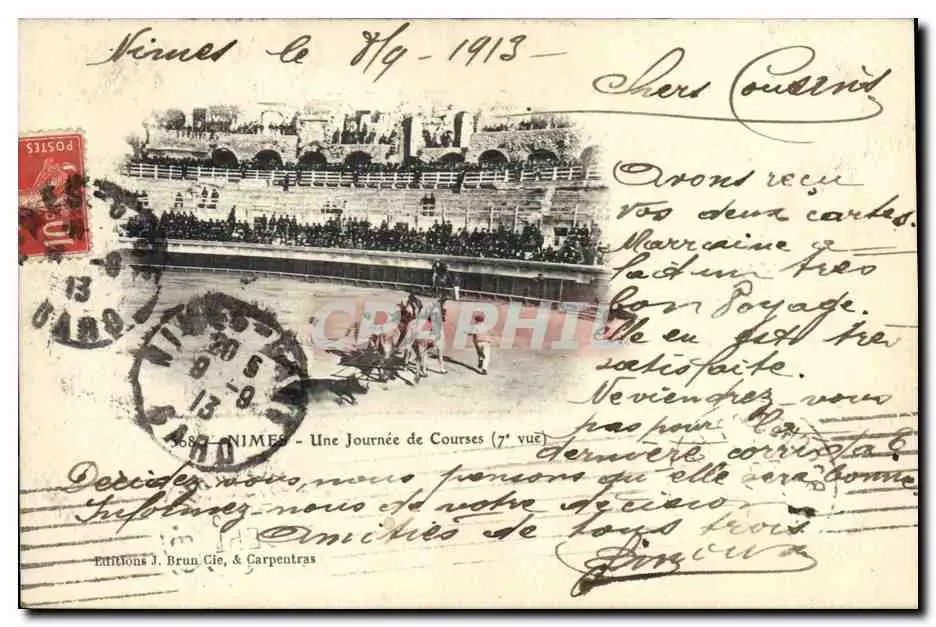 Nimes le 8/9 - 1913 -
Chers Cousins
Avons reçu
vos deux cartes.
Marraine a
fait un très
bon voyage.
elle en est tres
satisfaite.
Ne viendrez-vous
pas pour la
dernière corrida?
Décidez-vous, nous pensons qu'elle sera bonne.
Infolmez-nous de votre decision
Amitiés de tous trois
POSTES
10
13
GARD
NIMES
20 5
9 - 9
13
GARD
CPARHIF
368 - NIMES - Une Journée de Courses (7e vue)
Editions J. Brun Cie, & Carpentras